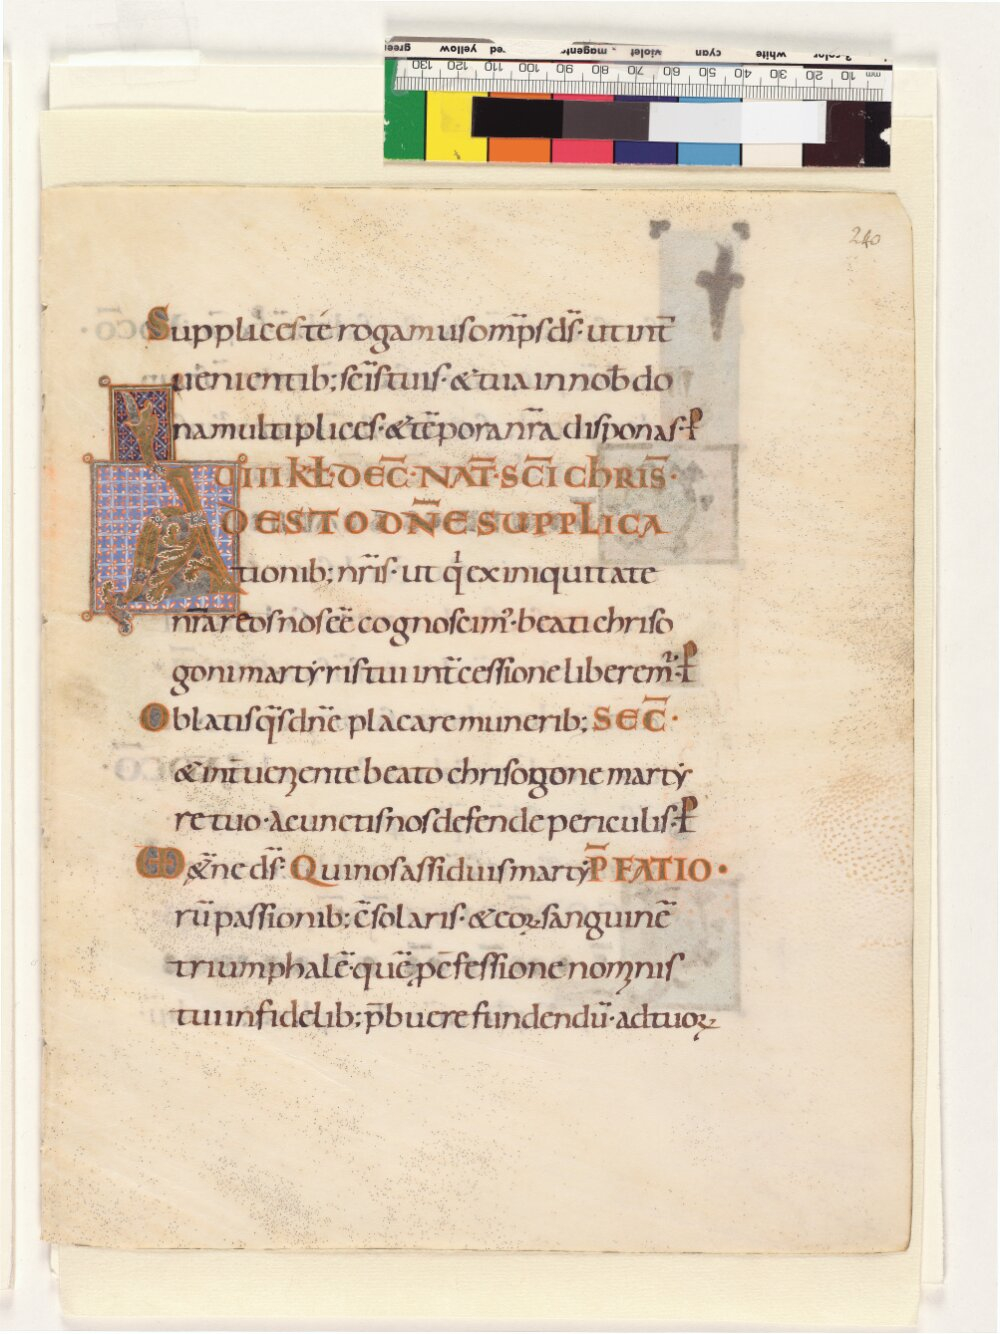 240
Supplices te rogamus omp̄s d̄s· ut int̄
uenientib; sc̄is tuis· & tua in nob̄ do
na multiplices· & tēpora nr̄a disponas· ꝑ
VIIII kł DEC̄· NAT̄· SC̄I CHRIS̄·
ADESTO DN̄E SUPPLICA
tionib; nr̄is· ut q̄ ex iniquitate
nr̄a reos nos eē cognoscim᾽· beati chriso
goni martyris tui int̄cessione liberem᾽· ꝑ
Oblatis q̄s dn̄e placare munerib; SEC̄·
& intueniente beato chrisogono marty
re tuo· a cunctis nos defende periculis· ꝑ
&̄ne d̄s· Qui nos assiduis marty P̄FATIO·
rū passionib; c̄solaris· & eoꝝ sanguinē
triumphalē· quē ꝑ c̄fessione nominis
tui infidelib; p̄buere fundendū· ad tuoꝝ